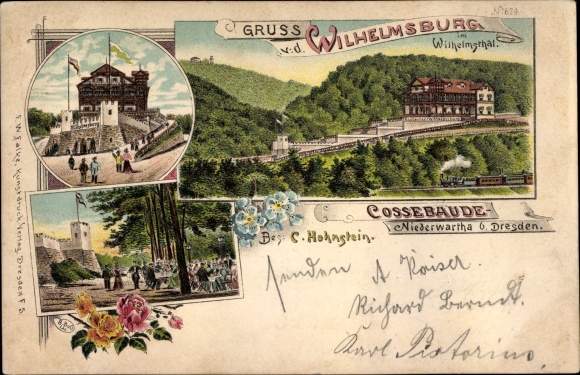 No 679
GRUSS
v. d. WILHELMSBURG
im
Wilhelmsthal.
COSSEBAUDE-
Niederwartha b. Dresden.
Bes. C. Hohnstein.
F. W. Falke, Kunstdruck Verlag, Dresden F. S.
senden A Kaiser.
Richard Berndt.
Karl Pistorius